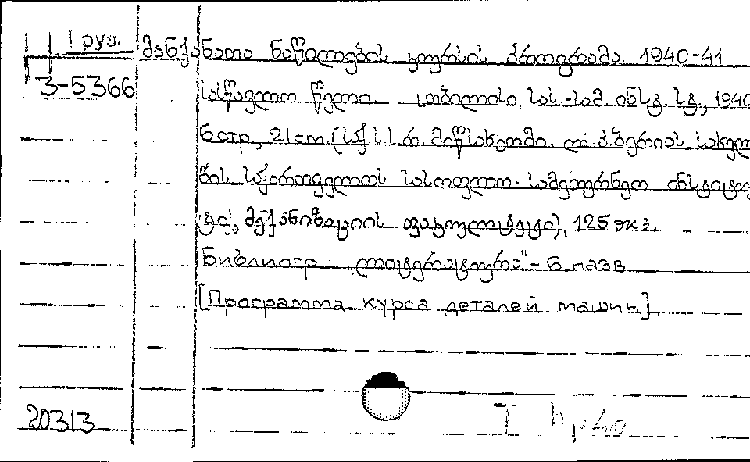 1 груз. მანქანათა ნაწილების კურსის პროგრამა 1940-41
3-5366 სასწავლო წელი. თბილისი, სას.-სამ. ინსტ. სტ., 1940
6 стр., 21 cm. (სქ.ს.ს.რ. მიწსახკომი. ლ. პ. ბერიას სახელო
ბის საქართველოს სასოფლო-სამეურნეო ინსტიტუ
ტი, მექანიზაციის ფაკულტეტი), 125 экз.
Библиогр. „ლიტერატურა" - 6 назв
[Программа курса деталей машин]
20313